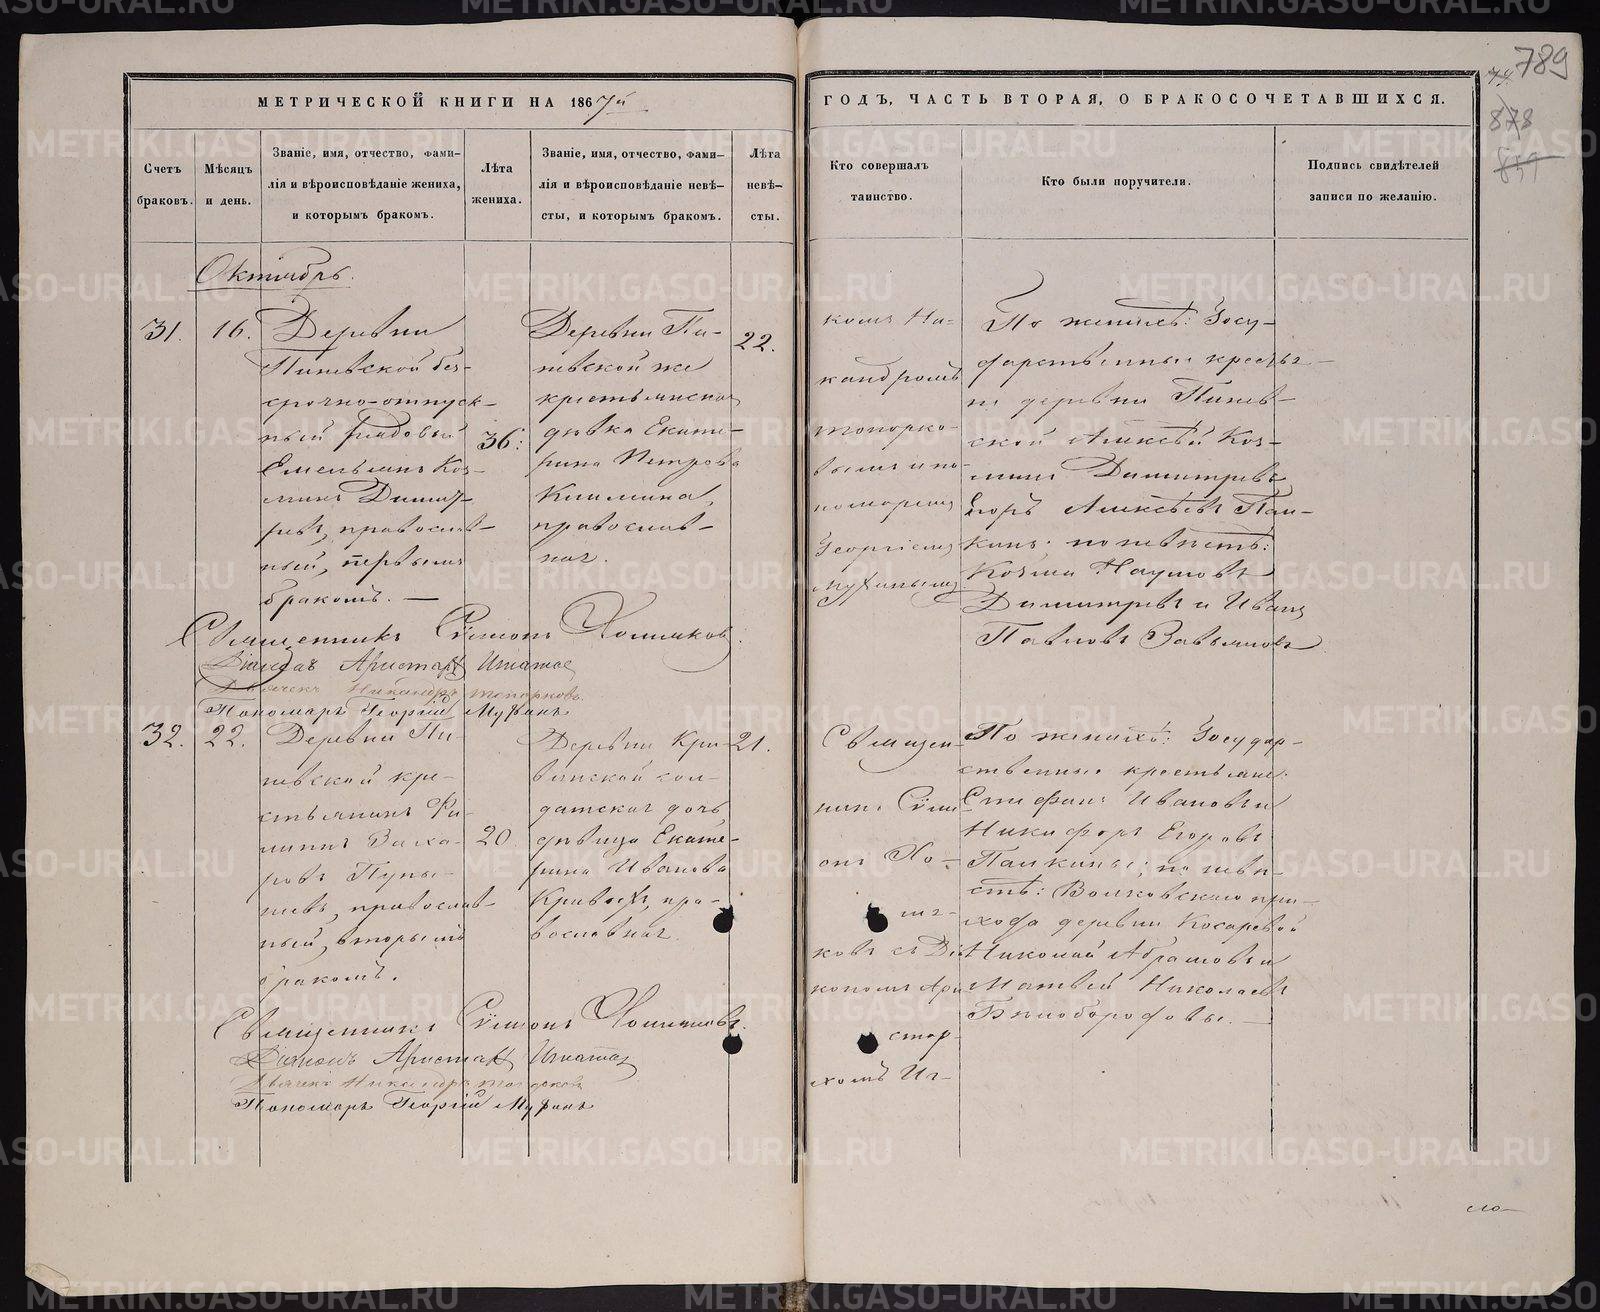 789
878
МЕТРИЧЕСКОЙ КНИГИ НА 1867й
ГОДЪ, ЧАСТЬ ВТОРАЯ, О БРАКОСОЧЕТАВШИХСЯ.
Счетъ
браковъ.
Мѣсяцъ
и день.
Званіе, имя, отчество, фами-
лія и вѣроисповѣданіе жениха,
и которымъ бракомъ.
Лѣта
жениха.
Званіе, имя, отчество, фами-
лія и вѣроисповѣданіе невѣ-
сты, и которымъ бракомъ.
Лѣта
невѣ-
сты.
Кто совершалъ
таинство.
Кто были поручители.
Подпись свидѣтелей
записи по желанію.
Октябрь.
31.
16.
Деревни
Пиневской без-
срочно-отпуск-
ный рядовый
Емельянъ Коз-
минъ Димит-
ріевъ, православ-
ный, первымъ
бракомъ.
36.
Деревни Пи-
невской же
крестьянская
дѣвка Екате-
рина Петрова
православ-
ная.
22.
комъ Ни-
кандромъ
Топорко-
вымъ и по-
номаремъ
Георгіемъ
Мухинымъ
По женихѣ: Госу-
дарственные крестья-
не деревни Пинев-
ской Алексѣй Коз-
минъ Димитріевъ
Егоръ Алексѣевъ Пал-
кинъ; по невѣстѣ:
Козма Наумовъ
Димитріевъ и Иванъ
Павловъ Завьяловъ
Священникъ Сѵмеонъ Холмяковъ.
Діаконъ Аристархъ Игнатьев
Дьячекъ Никандръ Топорковъ
Пономарь Георгій Мухинъ
32.
22.
Деревни Пи-
невской кре-
стьянинъ Фи-
липпъ Заха-
ровъ Пупы-
шевъ, православ-
ный, вторымъ
бракомъ.
20
Деревни Кри-
винской сол-
датская дочь
дѣвица Екате-
рина Иванова
Кривыхъ, пра-
вославная.
21.
Священ-
никъ Сѵме-
онъ Хо-
лмя-
ковъ съ Діа-
кономъ Ари-
стар-
хомъ Иг-
По женихѣ: Государ-
ственные крестьяне
Стефанъ Ивановъ и
Никифоръ Егоровъ
Палкины; по невѣ-
стѣ: Волковскаго при-
хода деревни Косаревой
Николай Абрамовъ и
Матвей Николаевъ
Бѣлобородовы.
Священникъ Сѵмеонъ Холмяковъ.
Діаконъ Аристархъ Игнатьев
Дьячекъ Никандръ Топорковъ
Пономарь Георгій Мухинъ
METRIKI.GASO-URAL.RU